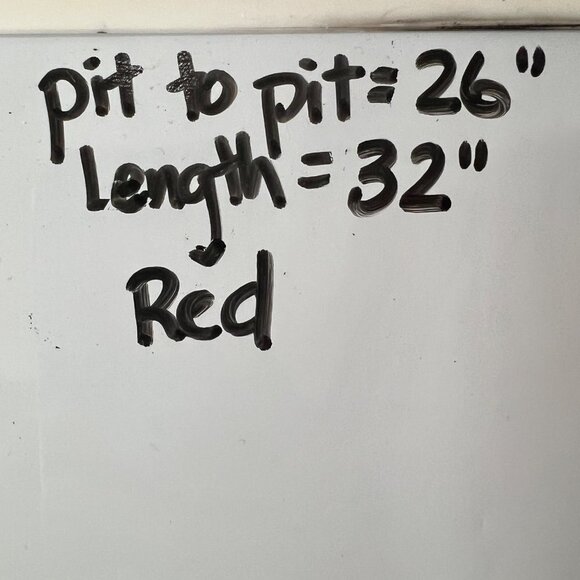 pit to pit = 26"
Length = 32"
Red